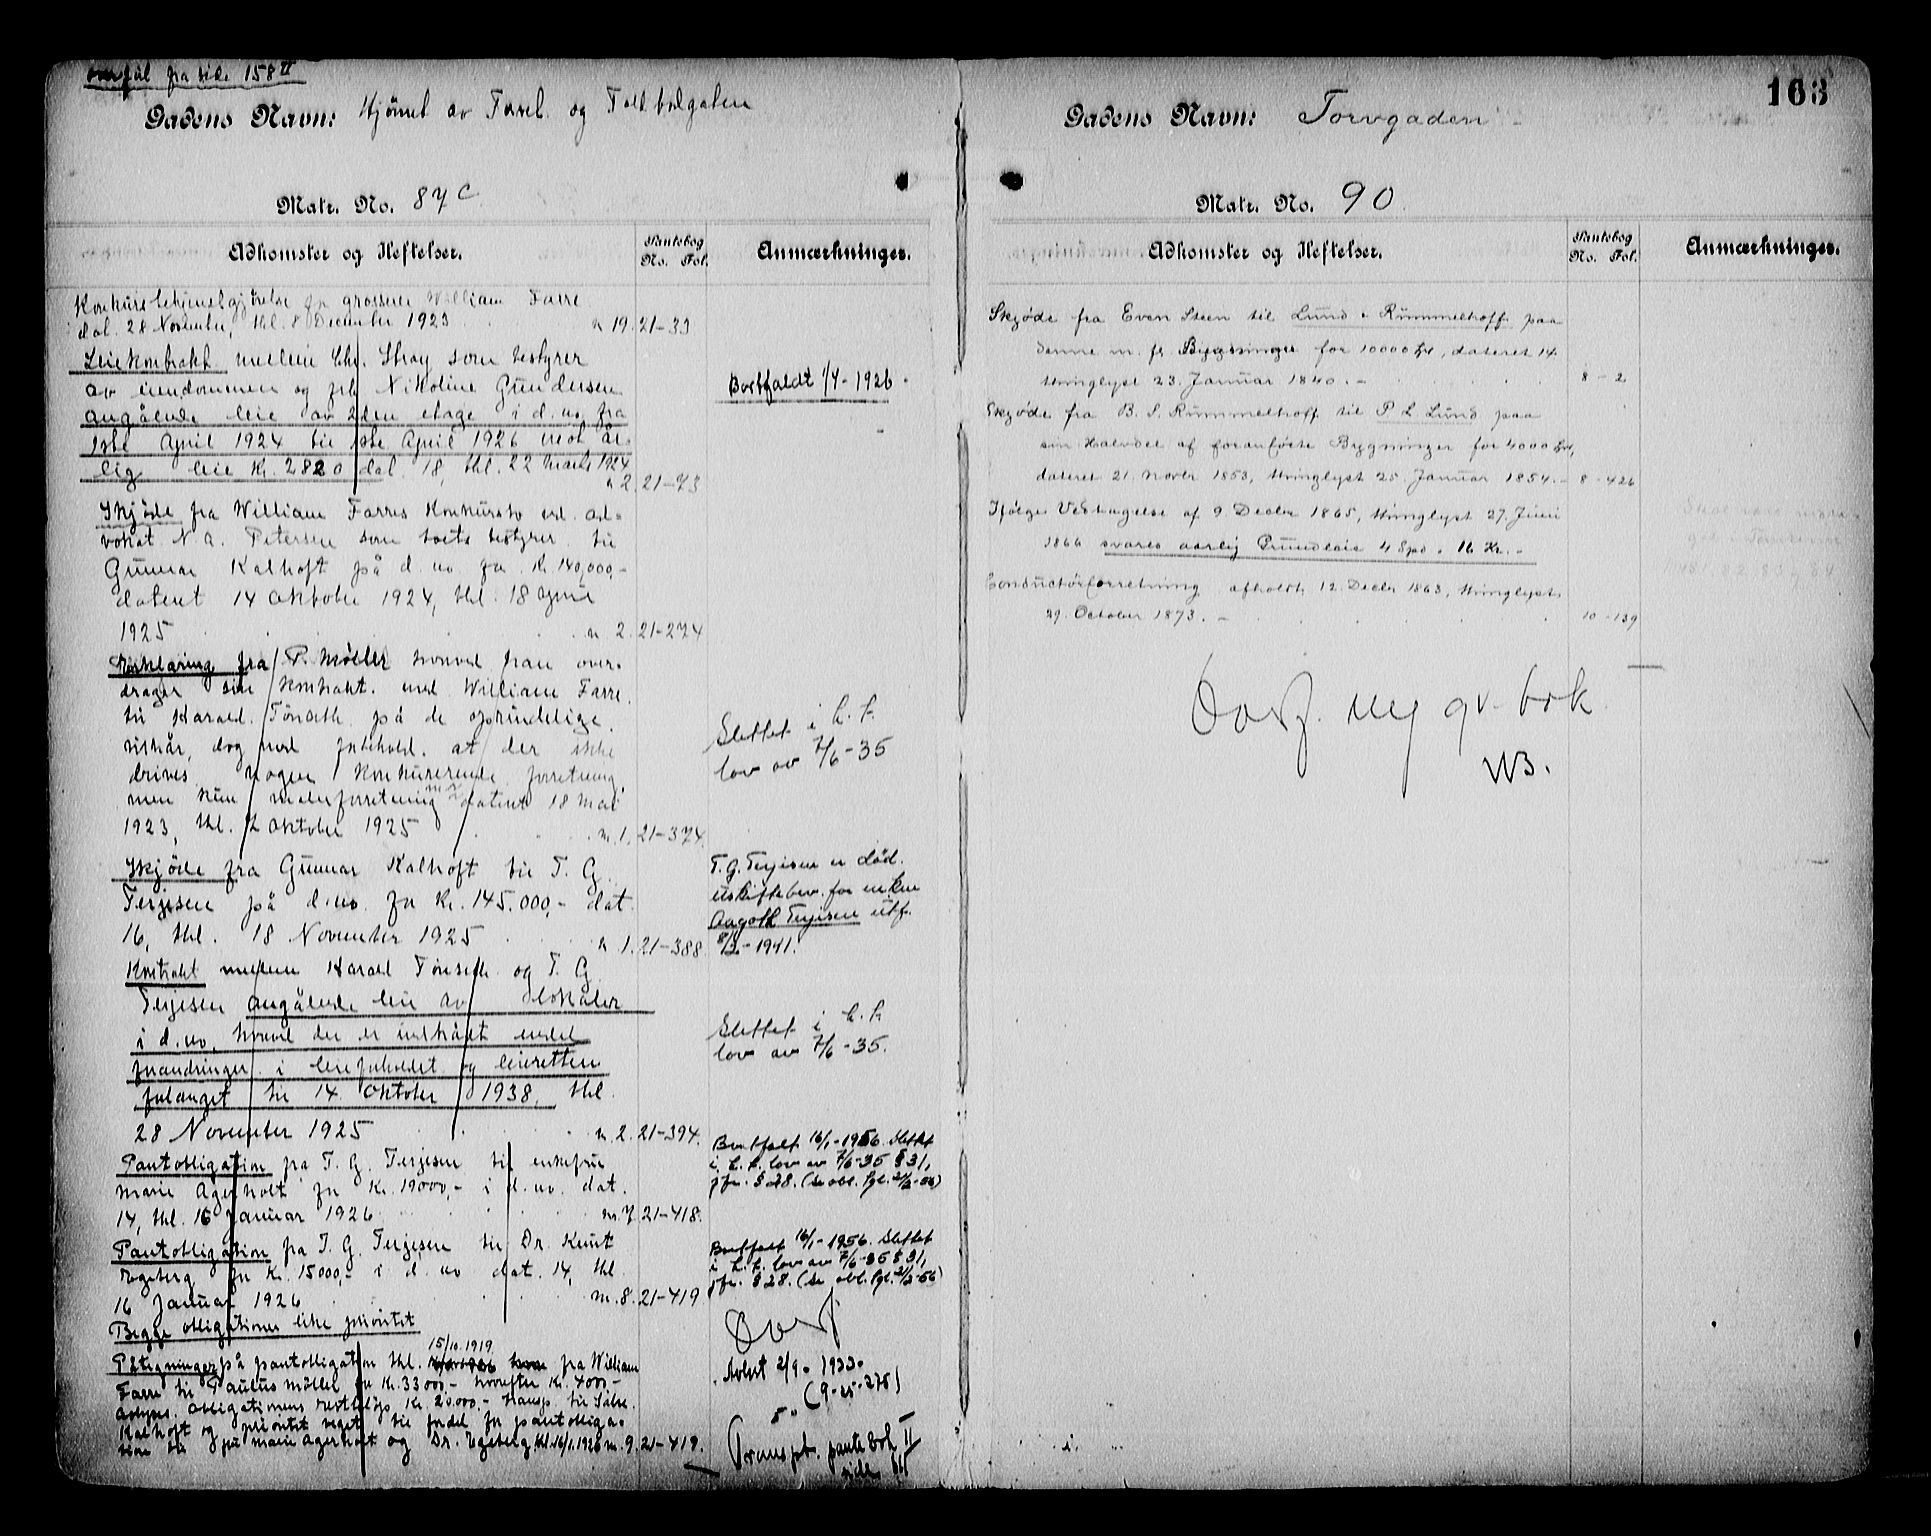 fra side 158 II
Gadens Navn: Hjörnet av Torvet og Toldbodgaten
Matr. No. 87 c
Adkomster og Heftelser.
Pantebog
No. Fol.
Anmærkninger.
Konkurs bekjentgjörelse for grosserer William Farre
dat. 28 November, thl. 8 December 1923 n 19. 21-33
Leiekontrakt mellem Chr. Stray som bestyrer
av eiendommen og frk Nikoline Gundersen
angålende leie av 2den etage i d. no. fra
1ste April 1924 til 1ste April 1926 mot år-
lig leie Kr. 2820 dat. 18, thl. 22 Marts 1924
n 2. 21-73
Bortfaldt 1/4-1926.
Skjöde fra William Farres Konkursbo ved ad-
vokat N. A. Petersen som boets bestyrer til
Gunnar Kalhoft på d. no. for Kr. 140,000,-
datert 14 Oktober 1924, thl. 18 April
1925 n 2. 21-274
Erklæring fra P. Møller hvorved han over-
drager sin kontrakt med William Farre
til Harald Tönseth på de oprindelige
vilkår, dog med forbehold at der ikke
drives nogen konkurerende forretning,
men kun datert 18 Mai
1923, thl. 2 Oktober 1925 n. 1. 21-374.
Slettet i h. t.
lov av 7/6-35
Skjöde fra Gunnar Kalhoft til T. G.
Terjesen på d. no. for Kr. 145.000,- dat.
16, thl. 18 November 1925 n 1. 21-388
T. G. Terjesen er död.
uskiftebev. for enken
Aagoth Terjesen utf.
1941.
Kontrakt mellem Harald Tönseth og T. G.
Terjesen angålende leie av lokaler
i d. no, hvorved der er indtrådt endel
forandringer i leieforholdet og leieretten
forlænget til 14 Oktober 1938, thl.
28 November 1925 n. 2. 21-394.
Slettet i h. t.
lov av 7/6-35.
Pantobligation fra T. G. Terjesen til enkefru
Marie Agerholt for Kr. 19000,- i d. no. dat.
14, thl. 16 Januar 1926 n. 7. 21-418.
Bortfalt 16/1-1956. Slettet
i h. t. lov av 7/6-35 § 31,
jfr. § 28.
Pantobligation fra T. G. Terjesen til Dr. Knut
Egeberg for Kr. 15000,- i d. no dat. 14, thl.
16 Januar 1926 n. 8. 21-419
Bortfalt 16/1-1956. Slettet
i h. t. lov av 7/6-35 § 31,
jfr. § 28.
Begge obligationer like prioritet
Overf
15/10. 1919.
Påtegninger på pantobligation thl. fra William
Farre til Paulus Möller for Kr. 33000,- hvorefter Kr. 4000,-
avlyses. Obligationens restbelöp Kr. 20.000,- transp. til
Kalhoft og prioritet veget til fordel for pantobliga-
tion til fru Marie Agerholt og Dr. Egeberg, thl. 16/1. 1926 n. 9. 21-419.
Avlest 2/9. 1933.
Transpt. pantebok II
side
163
Gadens Navn: Torvgaden
Matr. No. 90
Adkomster og Heftelser.
Pantebog
No. Fol.
Anmærkninger.
Skjøde fra Even Steen til Lund & Rummelhoff paa
denne m. fl. Bygninger for 10000 , dateret 14.
thinglyst 23. Januar 1840. - 8 - 2
Skjøde fra B. S. Rummelhoff til P L Lund paa
sin Halvdel af foranførte Bygninger for 4000 ,
dateret 21. Novbr 1853, thinglyst 25. Januar 1854. - 8 - 426
Ifølge Vedtagelse af 9. Decbr 1865, thinglyst 27. Juni
1866 svares aarlig Grundleie 4 Spd. = 16 Kr. -
Conductørforretning afholdt 12. Decbr 1863, thinglyst
29. October 1873. - 10 - 139
Overf. ny gr. bok